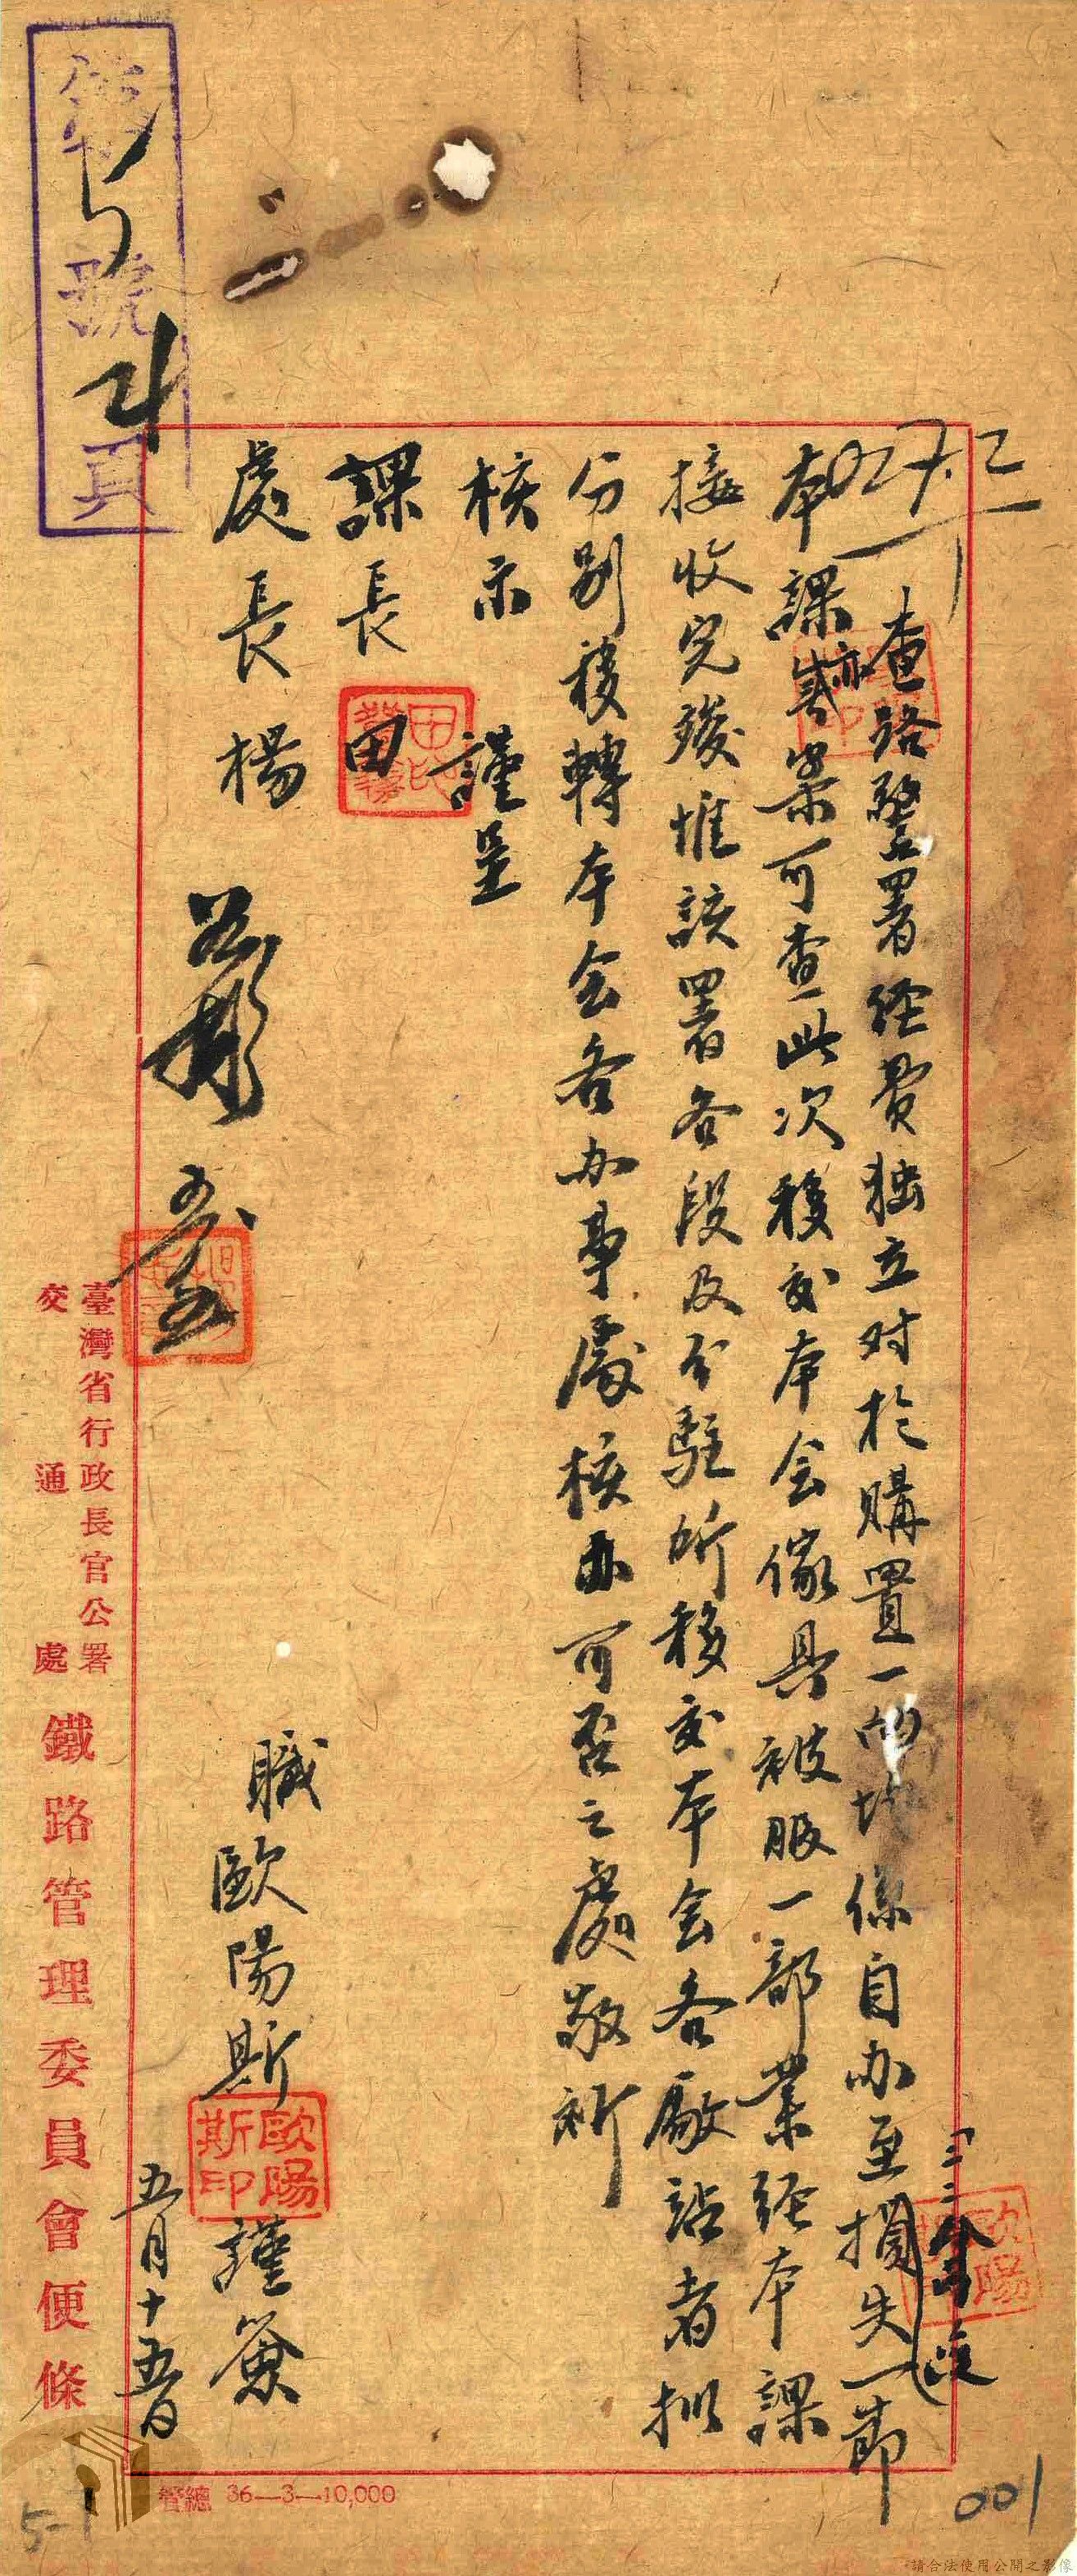 027.2
查路警署经費独立对於購置一切均係自办至損失一節
本課亦案可查此次移交本会傢具被服一部業经本課
接收完竣惟該署各段及分駐所移交本会各廠站者拟
分别移轉本会各办事處核办可否之處敬祈
核示 謹呈
課長 田
處長 楊
職歐陽斯 謹簽
歐陽斯印
五月十五日
臺灣省行政長官公署
交通處
鐵路管理委員會便條
總督 36—3—10,000
號
頁
001
5-1
請合法使用公開之影像